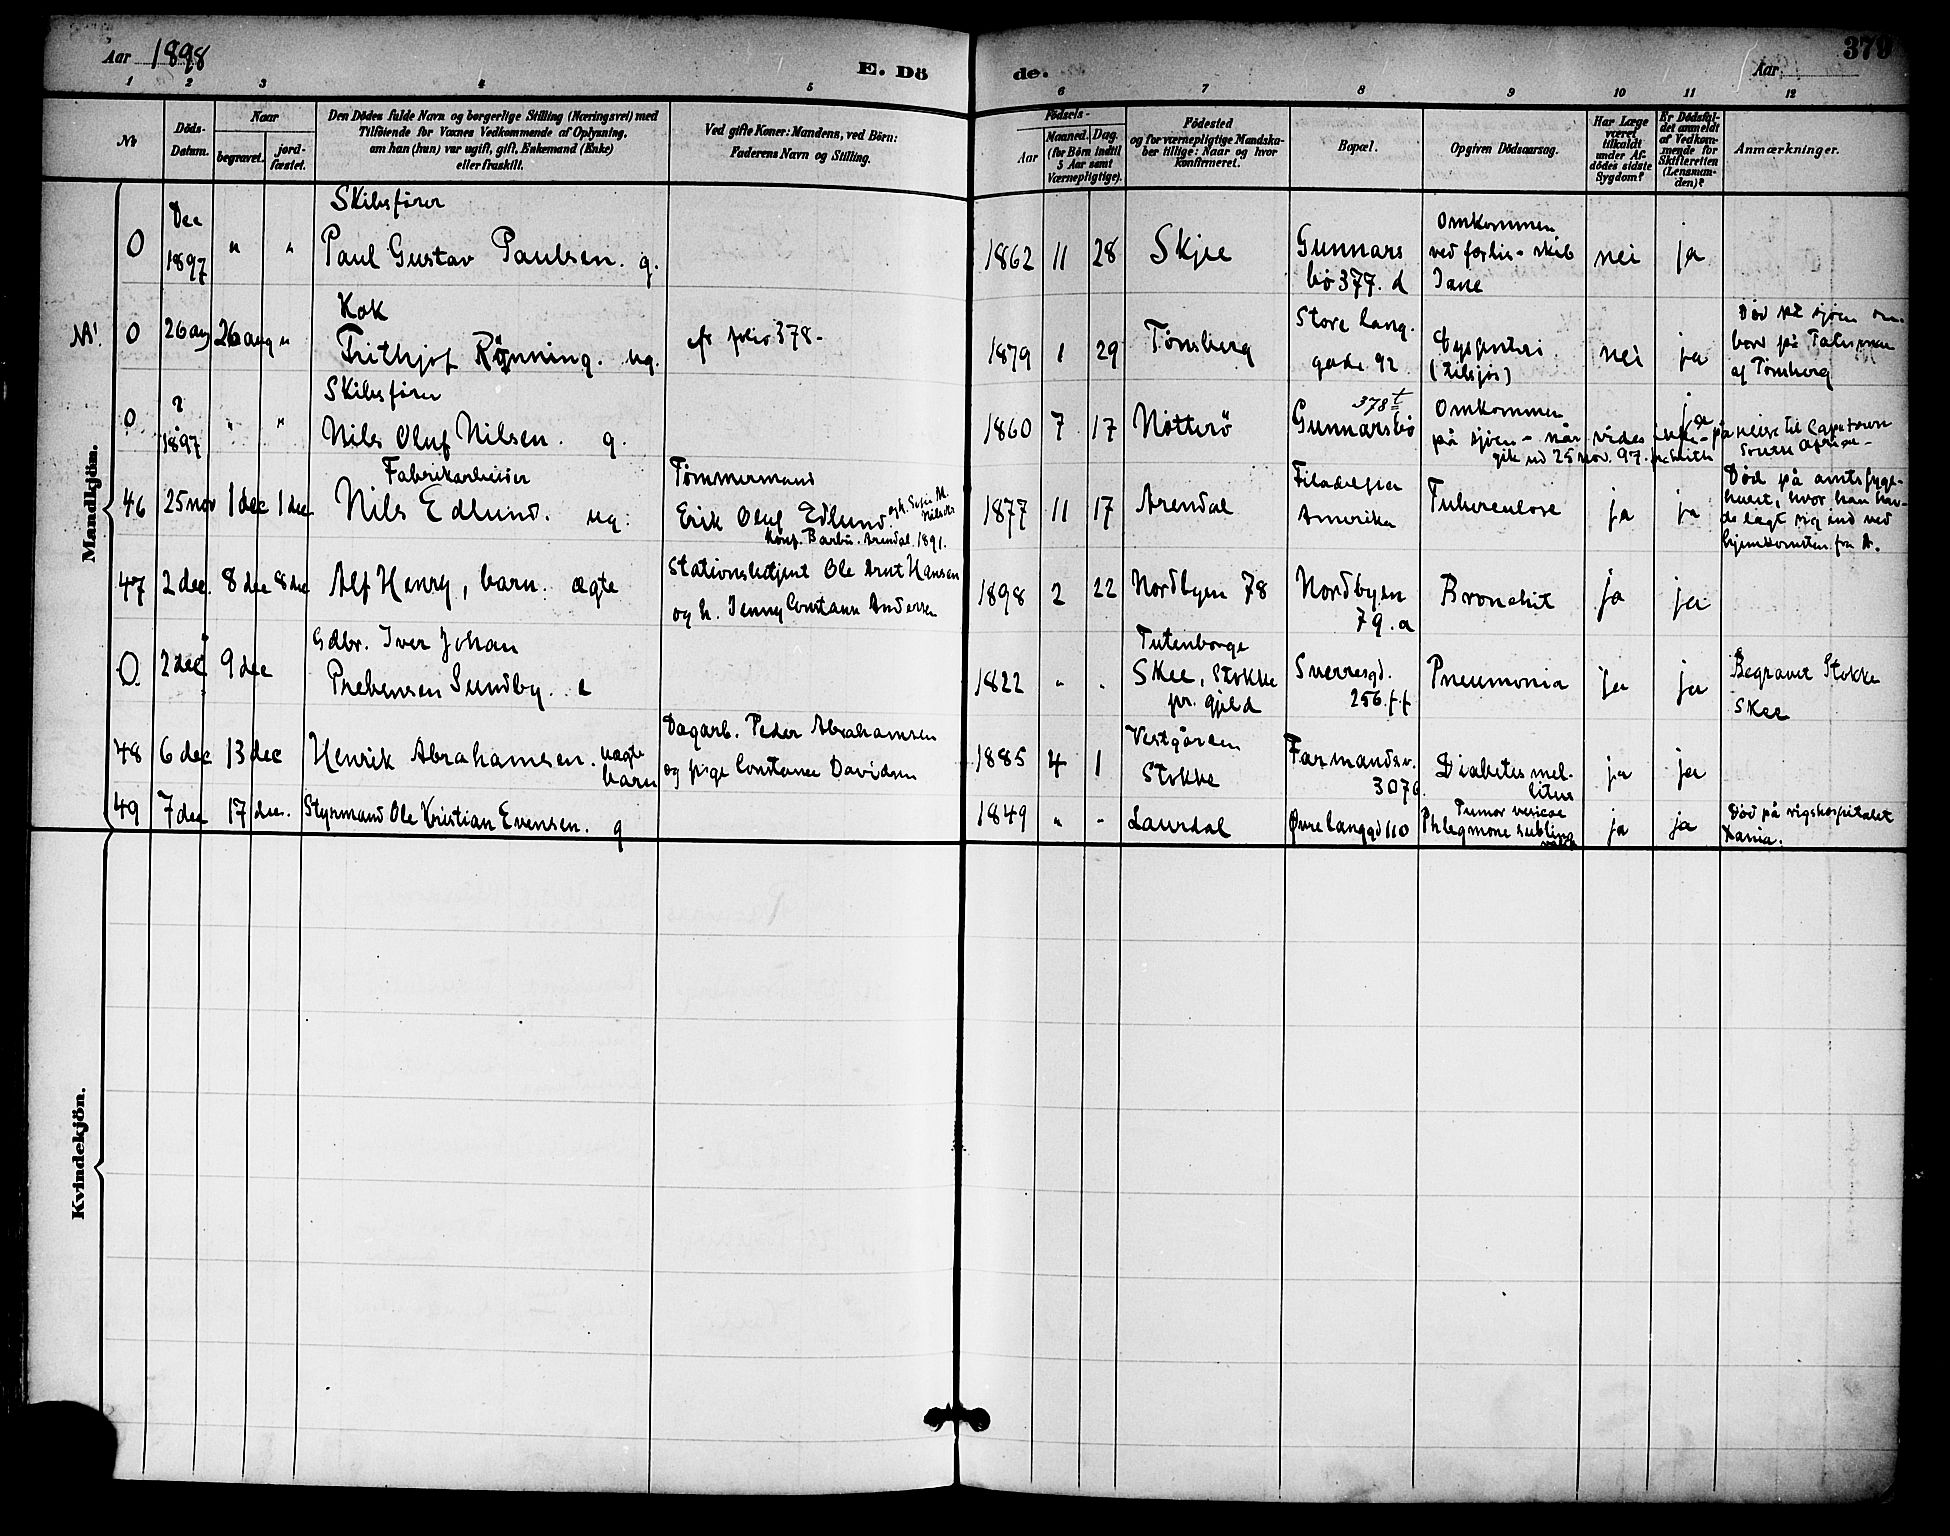 Aar 1898
E. Dö
de.
379
Aar
1 2 3 4 5 6 7 8 9 10 11 12
№
Döds-
Datum.
Naar
begravet.
jord-
fæstet.
Den Dödes fulde Navn og borgerlige Stilling (Næringsvei) med
Tilföiende for Voxnes Vedkommende af Oplysning,
om han (hun) var ugift, gift, Enkemand (Enke)
eller fraskilt.
Ved gifte Koner: Mandens, ved Börn:
Faderens Navn og Stilling.
Födsels-
Aar
Maaned. Dag.
(for Börn indtil
5 Aar samt
Værnepligtige).
Födested
og for værnepligtige Mandska-
ber tillige: Naar og hvor
konfirmeret.
Bopæl.
Opgiven Dödsaarsag.
Har Læge
været
tilkaldt
under Af-
dödes sidste
Sygdom?
Er Dödsfal-
det anmeldt
af Vedkom-
mende for
Skifteretten
(Lensman-
den)?
Anmærkninger.
Mandkjön.
0
Dec
1897
" "
Skibsfører
Paul Gustav Paulsen. g.
1862 11 28
Skjee
Gunnars
bö 377. d
Omkommen
ved forlis - skib
Jane
nei
ja
0
26 aug
26 aug "
Kok
Frithjof Rønning. ug.
cfr folio 378 -
1879 1 29
Tønsberg
Store lang.
gade 92
Dysenteri
(tilsjøs)
nei
ja
Død på sjøen om-
bord på Talisman
af Tønsberg
0
?
1897
" "
Skibsfører
Nils Oluf Nilsen. g.
1860 7 17
Nötterö
378 t
Gunnarsbö
Omkommen
på sjøen - når vides ikke - på reise til Capetown
gik ud 25 nov. 97.
ja
46
25 nov
1 dec 1 dec
Fabrikarbeider
Nils Edlund. ug.
Tømmermand
Erik Oluf Edlund.
Konf. Barbu. Arendal. 1891.
1877 11 17
Arendal
Filadelfia
Amerika
Tuberculose
ja
ja
Død på amtssyge-
huset, hvor han hav-
de lagt sig ind ved
hjemkomsten fra A.
47
2 dec.
8 dec 8 dec
Alf Henry, barn. ægte
Stationsbetjent Ole Arnt Hansen
og h. Jenny Constance Andersen
1898 2 22
Nordbyen 78
Nordbyen
79. a
Bronchit
ja
ja
0.
2 dec
9 dec
Gdbr. Iver Johan
Prebensen Sundby. e
1822 " "
Tutenborge
Skee, Stokke
pr. gjeld
Sverresgd.
256. ff
Pneumonia
ja
ja
Begravet Stokke
Skee
48
6 dec
13 dec
Henrik Abrahamsen. uægte
barn
Dagarb. Peder Abrahamsen
og pige Constance Davidsen
1885 4 1
Vestgården
Stokke
Farmandsv.
307
Diabetes mel-
litus
ja
ja
49
7 dec
17 dec.
Styrmand Ole Kristian Evensen. g
1849 " "
Laurdal
Øvre langgd 110
Tumor vesicae
Phlegmone subling
ja
ja
Død på rigshospitalet
Xania.
Kvindekjön.